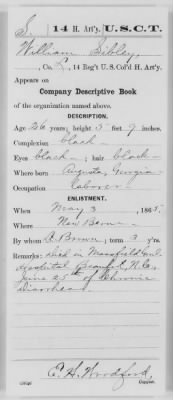 S. | 14 H. Art'y. | U.S.C.T.
William Sibley,
, Co. L, 14 Reg't U. S. Col'd H. Art'y.
Appears on
Company Descriptive Book
of the organization named above.
DESCRIPTION.
Age 26 years; height 5 feet 9 inches.
Complexion black
Eyes black; hair black
Where born Augusta, Georgia
Occupation laborer
ENLISTMENT.
When May 3, 1865.
Where New Berne
By whom Brown; term 3 y'rs.
Remarks: Died in Mansfield Genl
Hospital Beaufort, N.C.,
June of Chronic
Diarrhea
C. H. Woodford
Copyist.